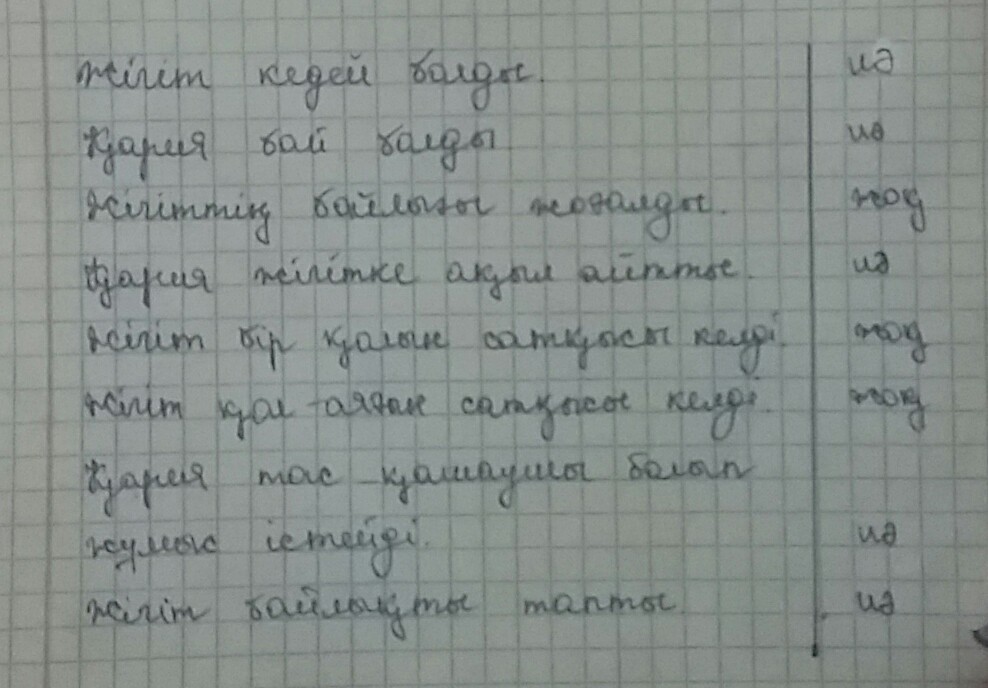 жігіт кедей болды. иә
Қария бай болды иә
жігіттің байлығы жоғалды. жоқ
Қария жігітке ақыл айтты. иә
жігіт бір қолын сатқысы келді. жоқ
жігіт қол-аяғын сатқысы келді. жоқ
Қария тас қашаушы болып
жұмыс істейді. иә
жігіт байлықты тапты иә